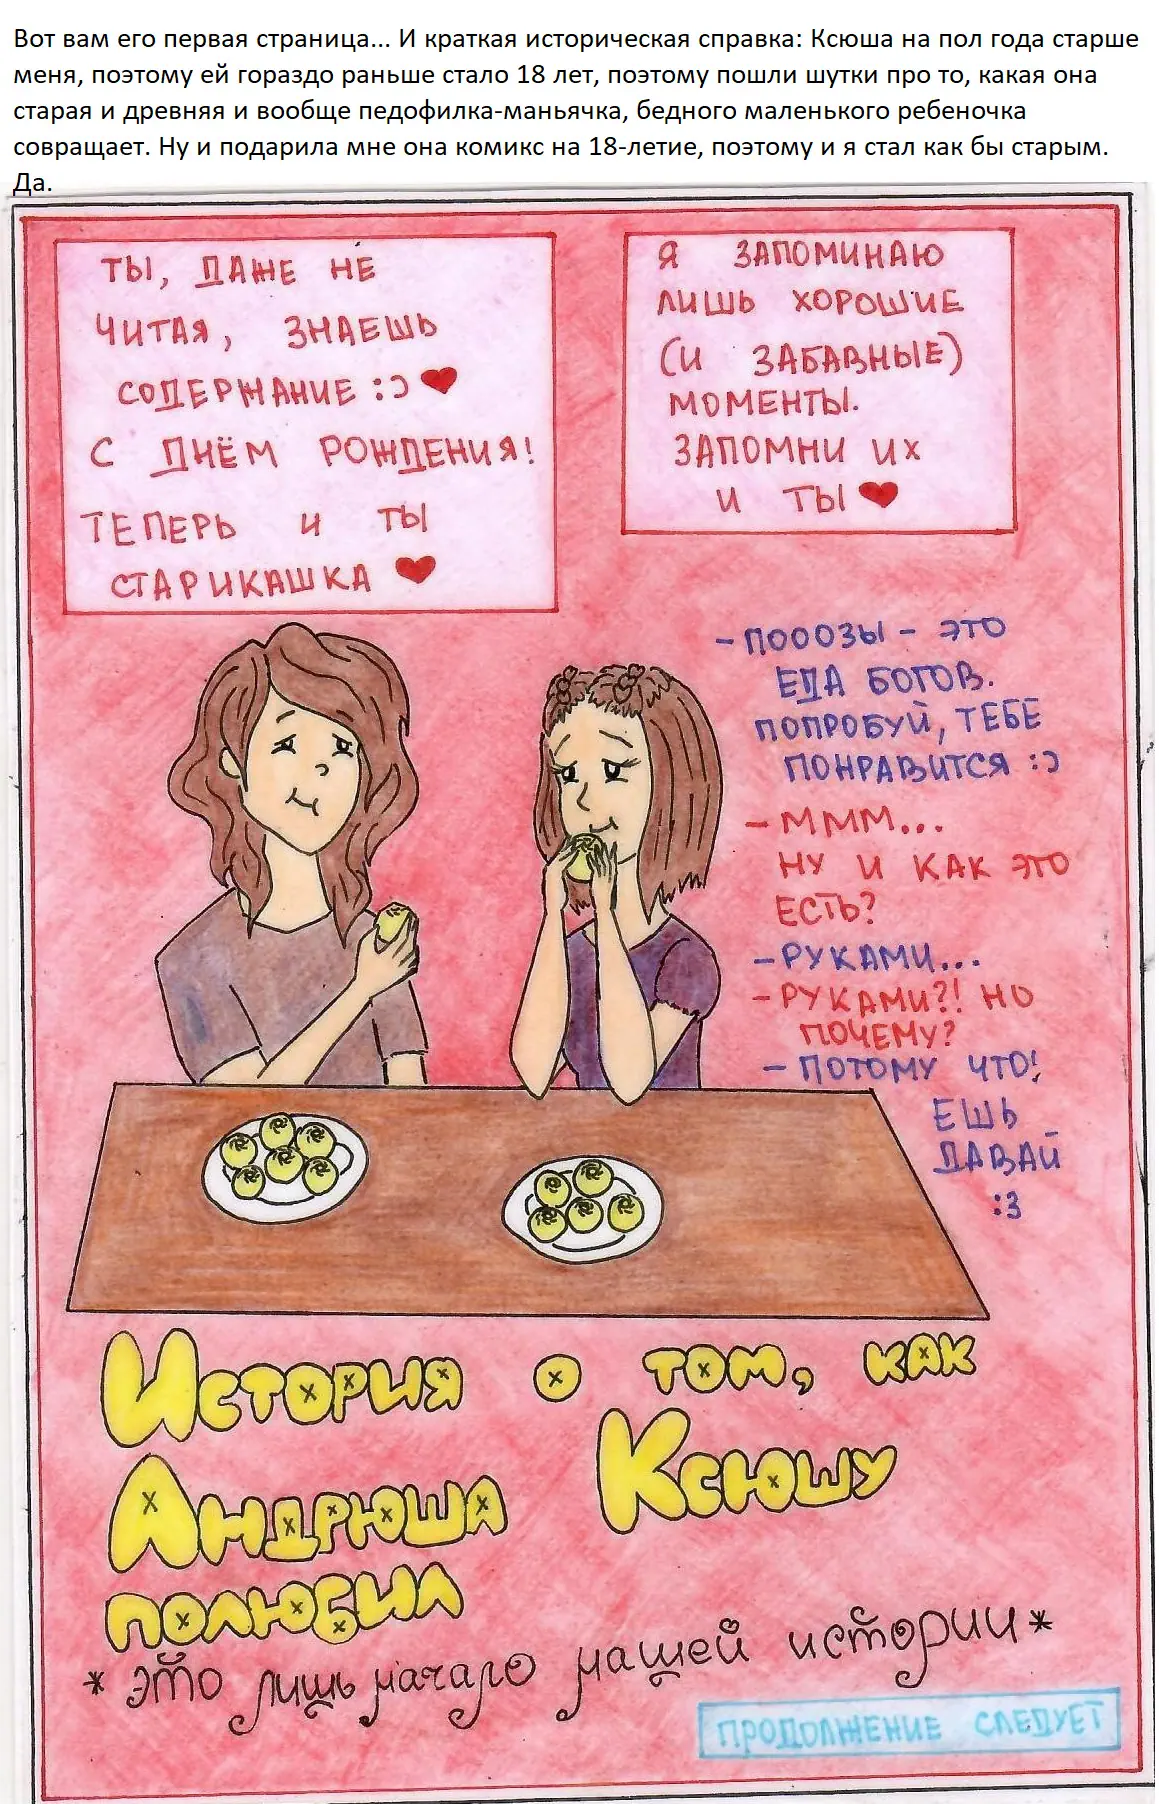 Вот вам его первая страница... И краткая историческая справка: Ксюша на пол года старше
меня, поэтому ей гораздо раньше стало 18 лет, поэтому пошли шутки про то, какая она
старая и древняя и вообще педофилка-маньячка, бедного маленького ребеночка
совращает. Ну и подарила мне она комикс на 18-летие, поэтому и я стал как бы старым.
Да.
ТЫ, ДАЖЕ НЕ
ЧИТАЯ, ЗНАЕШЬ
СОДЕРЖАНИЕ :Ɔ ♥
С ДНЁМ РОЖДЕНИЯ!
ТЕПЕРЬ И ТЫ
СТАРИКАШКА ♥
Я ЗАПОМИНАЮ
ЛИШЬ ХОРОШИЕ
(И ЗАБАВНЫЕ)
МОМЕНТЫ.
ЗАПОМНИ ИХ
И ТЫ ♥
- ПОООЗЫ - ЭТО
ЕДА БОГОВ.
ПОПРОБУЙ, ТЕБЕ
ПОНРАВИТСЯ :Ɔ
- МММ...
НУ И КАК ЭТО
ЕСТЬ?
- РУКАМИ...
- РУКАМИ?! НО
ПОЧЕМУ?
- ПОТОМУ ЧТО!
ЕШЬ
ДАВАЙ
:3
История о том, как
Андрюша Ксюшу
полюбил
* это лишь начало нашей истории *
ПРОДОЛЖЕНИЕ СЛЕДУЕТ